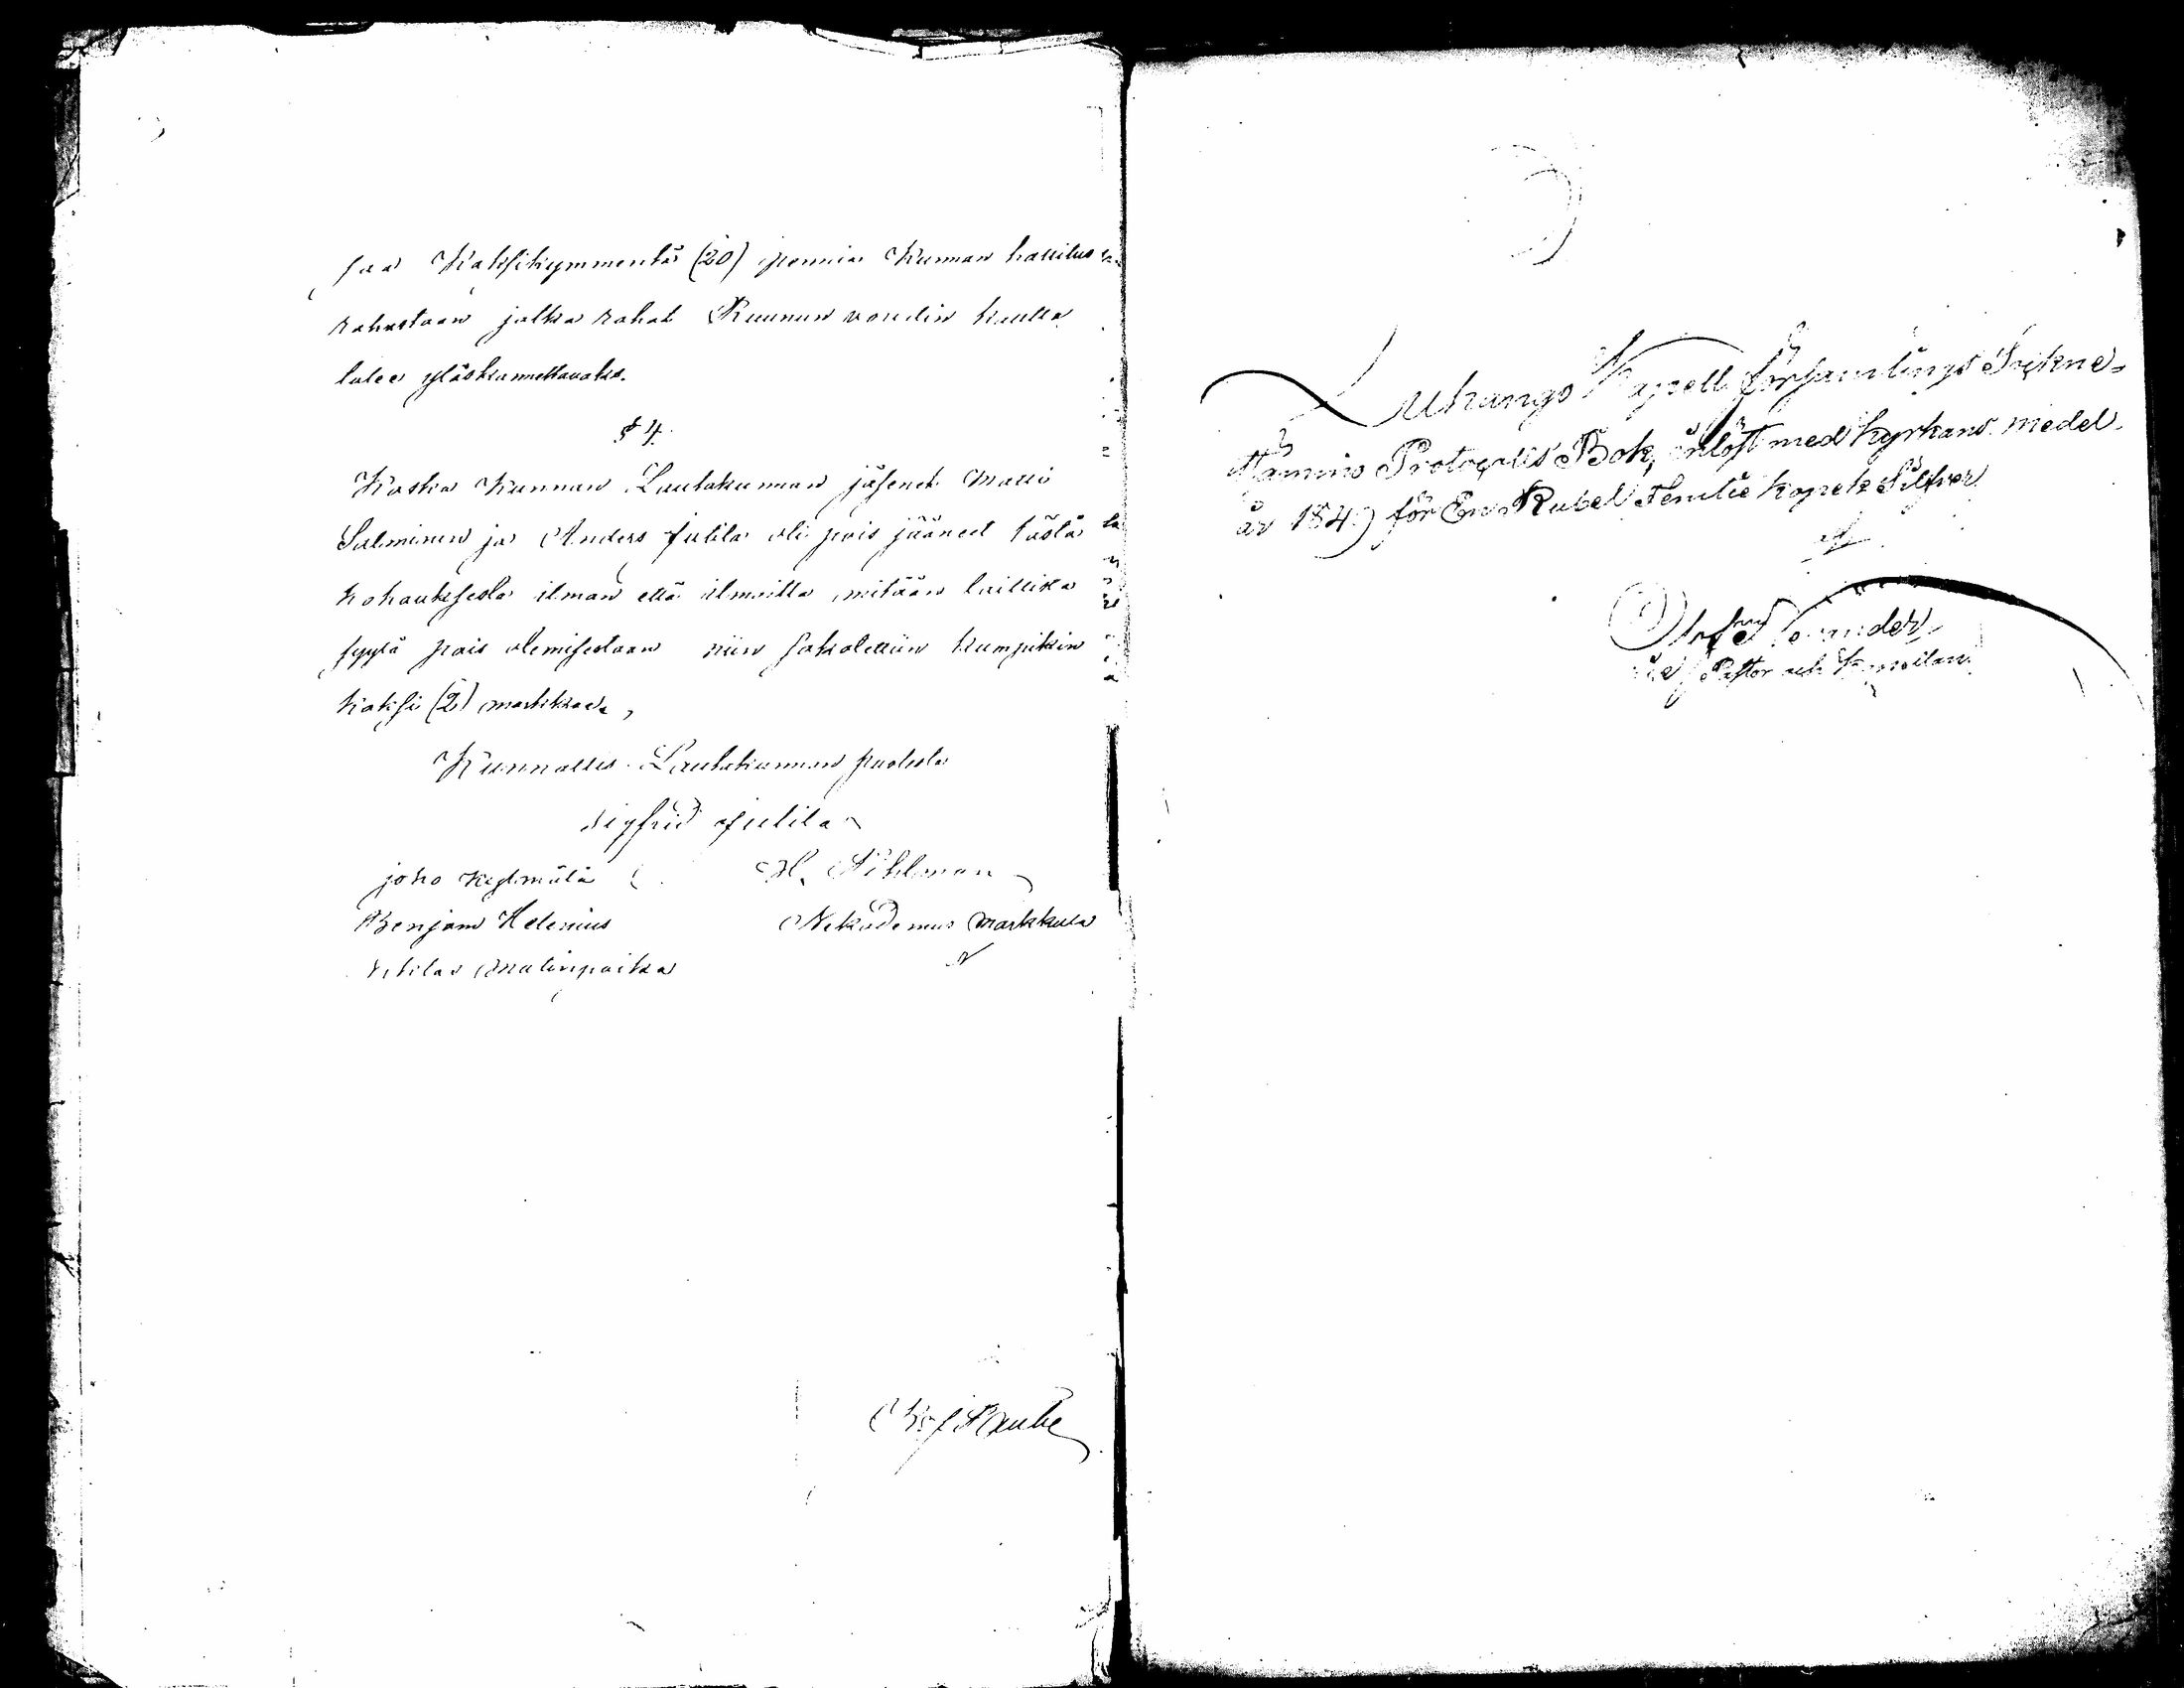 saa Kaksikymmentä (20) penniä Kunnan hallitus
rahastaan jotka rahat Ruunun voudin kautta
tulee ylöskannettavaksi.
§ 4.
Koska Kunnan Lautakunnan jäsenet Matti
Salminen ja Anders Jutila oli pois jääneet tästä
kokouksesta ilman että ilmoitta mitään laillista
syytä pois olemisestaan niin sakotettiin kumpikin
kaksi (2) markkaa,
Kunnallis Lautakunnan puolesta
Sigfrid Jutila
joho Kylmälä H. Åhlman
Benjam Helenius Nekodemus Markkula
Matinpoika
Luhango Kapell församlings Sockne-
stämmo Protocolls Bok, inlöst med kyrkans medel
år 1849 för En Rubel Femtie kopek Silfver
af
Pastor och